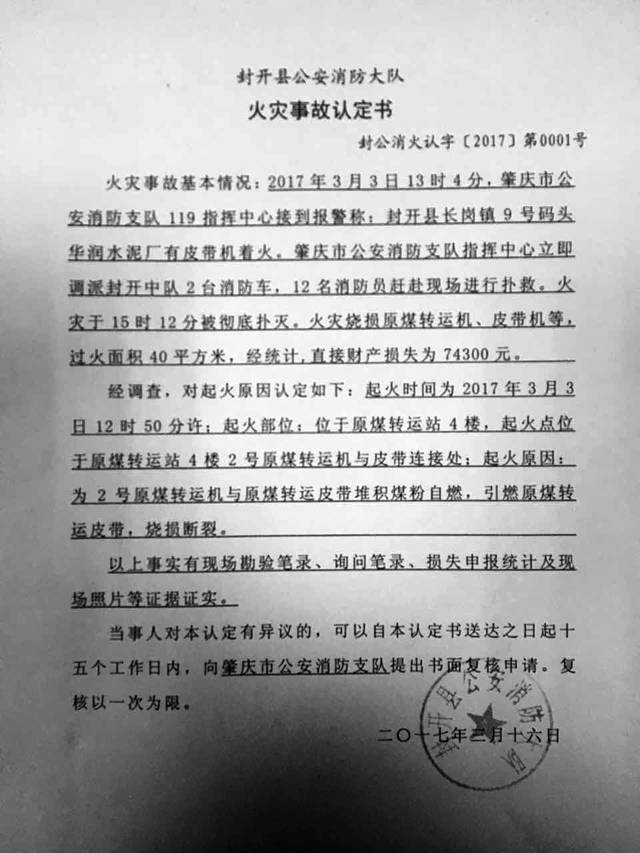 封开县公安消防大队
火灾事故认定书
封公消火认字〔2017〕第0001号
火灾事故基本情况：2017年3月3日13时4分，肇庆市公
安消防支队119指挥中心接到报警称：封开县长岗镇9号码头
华润水泥厂有皮带机着火。肇庆市公安消防支队指挥中心立即
调派封开中队2台消防车，12名消防员赶赴现场进行扑救。火
灾于15时12分被彻底扑灭。火灾烧损原煤转运机、皮带机等，
过火面积40平方米，经统计,直接财产损失为74300元。
经调查，对起火原因认定如下：起火时间为2017年3月3
日12时50分许；起火部位：位于原煤转运站4楼，起火点位
于原煤转运站4楼2号原煤转运机与皮带连接处；起火原因：
为2号原煤转运机与原煤转运皮带堆积煤粉自燃，引燃原煤转
运皮带，烧损断裂。
以上事实有现场勘验笔录、询问笔录、损失申报统计及现
场照片等证据证实。
当事人对本认定有异议的，可以自本认定书送达之日起十
五个工作日内，向肇庆市公安消防支队提出书面复核申请。复
核以一次为限。
二〇一七年三月十六日
封开县公安消防大队